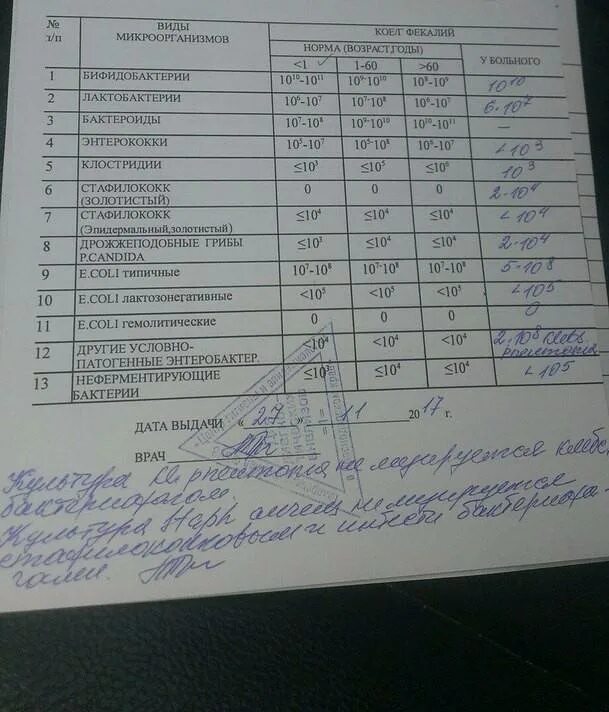 № п/п ВИДЫ МИКРООРГАНИЗМОВ КОЕ/Г ФЕКАЛИЙ
НОРМА (ВОЗРАСТ,ГОДЫ) У БОЛЬНОГО
<1 1-60 >60
1 БИФИДОБАКТЕРИИ 10¹⁰-10¹¹ 10⁹-10¹⁰ 10⁸-10⁹ 10¹⁰
2 ЛАКТОБАКТЕРИИ 10⁶-10⁷ 10⁷-10⁸ 10⁶-10⁷ 6·10⁷
3 БАКТЕРОИДЫ 10⁷-10⁸ 10⁹-10¹⁰ 10¹⁰-10¹¹ —
4 ЭНТЕРОКОККИ 10⁵-10⁷ 10⁵-10⁸ 10⁶-10⁷ <10³
5 КЛОСТРИДИИ ≤10³ ≤10⁵ ≤10⁶ 10³
6 СТАФИЛОКОКК (ЗОЛОТИСТЫЙ) 0 0 0 2·10⁴
7 СТАФИЛОКОКК (Эпидермальный,золотистый) ≤10⁴ ≤10⁴ ≤10⁴ <10⁴
8 ДРОЖЖЕПОДОБНЫЕ ГРИБЫ Р.CANDIDA ≤10³ ≤10⁴ ≤10⁴ 2·10⁴
9 E.COLI типичные 10⁷-10⁸ 10⁷-10⁸ 10⁷-10⁸ 5·10⁸
10 E.COLI лактозонегативные <10⁵ <10⁵ <10⁵ <10⁵
11 E.COLI гемолитические 0 0 0 0
12 ДРУГИЕ УСЛОВНО-ПАТОГЕННЫЕ ЭНТЕРОБАКТЕР. <10⁴ <10⁴ <10⁴ 2·10⁸
13 НЕФЕРМЕНТИРУЮЩИЕ БАКТЕРИИ ≤10³ ≤10⁴ ≤10⁴ <10⁵
ДАТА ВЫДАЧИ « 27 » 11 2017 г.
ВРАЧ
Культура не лизируется клебс.
бактериофагом.
Культура Staph не лизируется
стафилококковым и интести бактериофа-
гами.